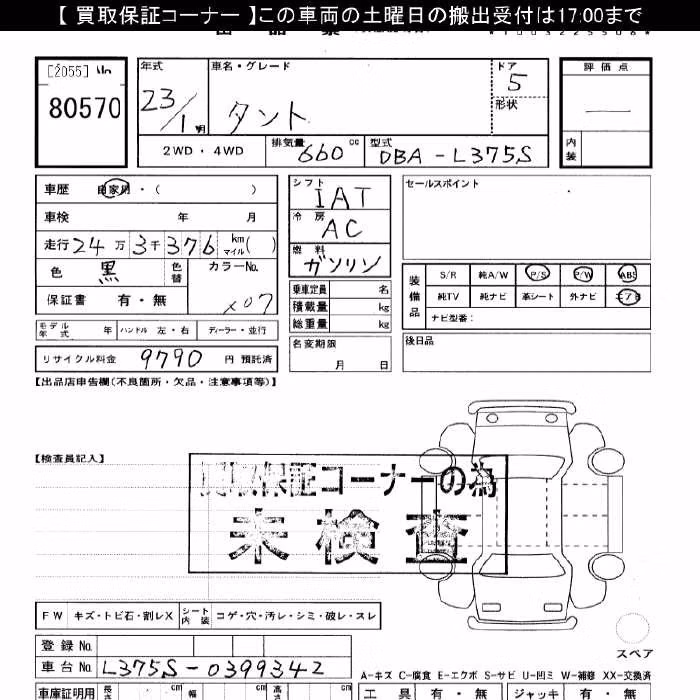 【 買取保証コーナー 】この車両の土曜日の搬出受付は17:00まで
[2055] No
80570
年式
23/1 明
車名・グレード
タント
ドア
5
形状
評 価 点
—
内装
2WD ・ 4WD
排気量 660 cc
型式 DBA-L375S
車歴 自家用 ・ ( )
車検 年 月
走行 24 万 3 千 376 km マイル ( )
色 黒 色替
カラーNo. X07
保証書 有 ・ 無
シフト IAT
冷房 AC
燃料 ガソリン
乗車定員 名
積載量 kg
総重量 kg
名変期限
月 日
セールスポイント
装備品
S/R 純A/W P/S P/W ABS
純TV 純ナビ 革シート 外ナビ エアB
ナビ型番:
後日品
モデル年式 年 ハンドル 左 ・ 右 ディーラー・並行
リサイクル料金 9790 円 預託済
【出品店申告欄(不良箇所・欠品・注意事項等)】
【検査員記入】
買取保証コーナーの為
未検査
FW キズ・トビ石・割レX シート内装 コゲ・穴・汚レ・シミ・破レ・スレ
登録 No.
車台 No. L375S-0399342
スペア
A-キズ C-腐食 E-エクボ S-サビ U-凹ミ W-補修 XX-交換済
車庫証明用 長さ cm 幅 cm 高さ cm
工 具 有 ・ 無 ジャッキ 有 ・ 無